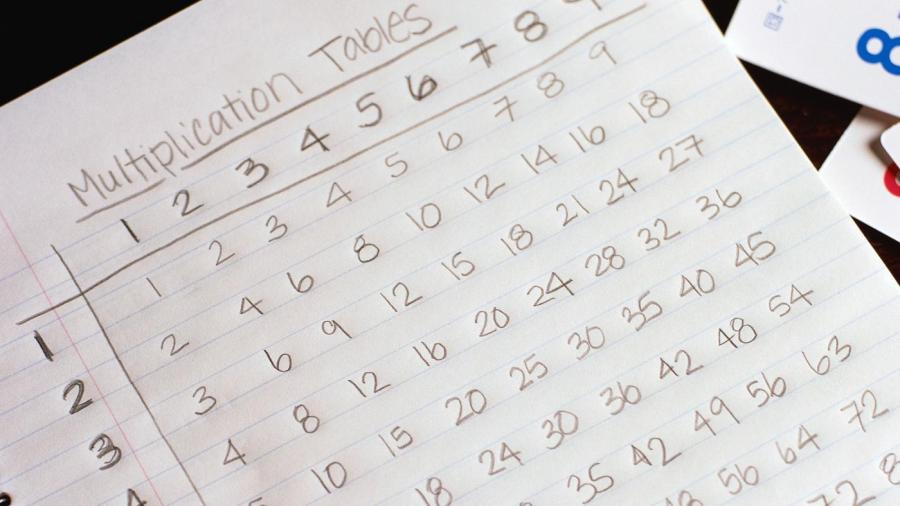 Multiplication Tables
1 2 3 4 5 6 7 8
1 1 2 3 4 5 6 7 8 9
2 2 4 6 8 10 12 14 16 18
3 3 6 9 12 15 18 21 24 27
4 4 8 12 16 20 24 28 32 36
5 10 15 20 25 30 35 40 45
18 24 30 36 42 48 54
35 42 49 56 63
48 56 64 72
72
8